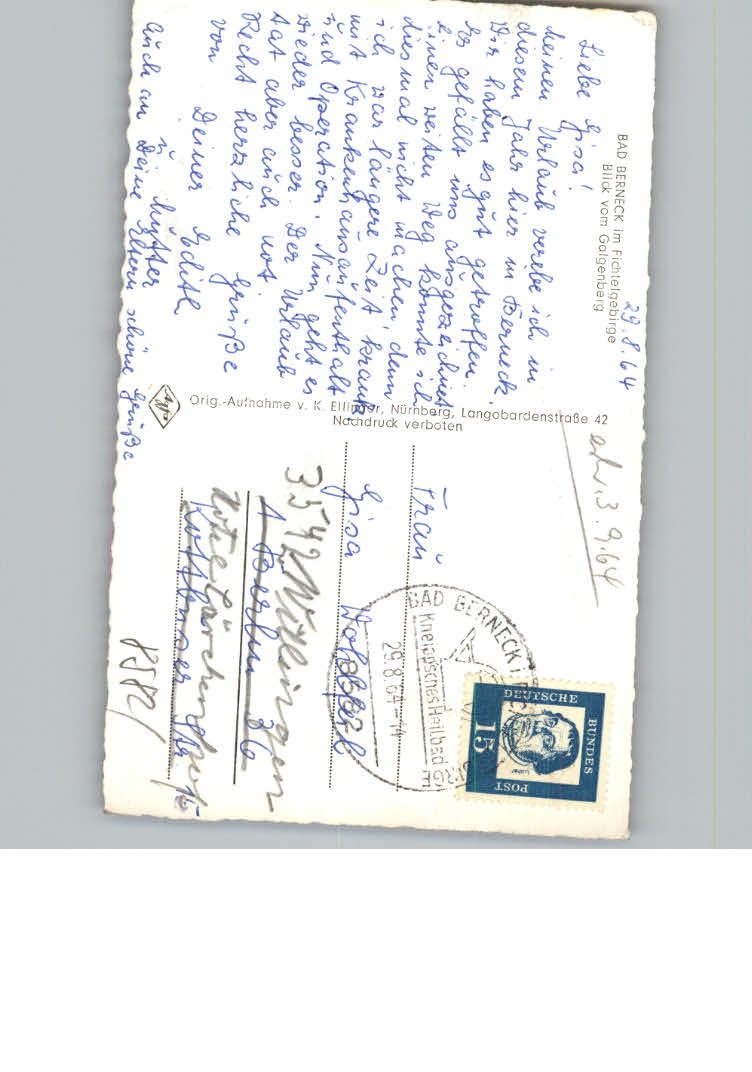 BAD BERNECK im Fichtelgebirge
Blick vom Galgenberg
29.8.64
Liebe Gisa!
Meinen Urlaub verlebe ich in
diesem Jahr hier in Berneck.
Wir haben es gut getroffen.
Es gefällt uns ausgezeichnet.
Einen weiten Weg konnte ich
diesmal nicht machen, denn
ich war längere Zeit krank
mit Krankenhausaufenthalt
und Operation. Nun geht es
wieder besser. Der Urlaub
tat aber auch not.
Recht herzliche Grüße
von Deiner Edith
u. Mutter
Auch an Deine Eltern schöne Grüße
Agfa
Orig.-Aufnahme v. K. Ellinger, Nürnberg, Langobardenstraße 42
Nachdruck verboten
3.9.64
BAD BERNECK
Kneippsches Heilbad
29.8.64-14
DEUTSCHE
BUNDES
POST
15
Luther
Frau
Gisa
1 Berlin 36
Kottbusser Str.
3542 Willingen